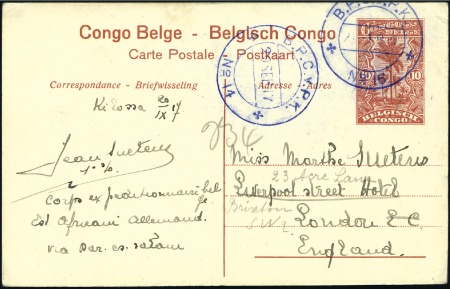 Congo Belge - Belgisch Congo
Carte Postale Postkaart
Correspondance - Briefwisseling
Adresse - Adres
10 10
BELGISCH
CONGO
B.P.C.V.P.K.
Nº 14
Kilossa 20/IX 17
Jean
corps expeditionnaire belge
Est Africain Allemand.
via Dar-es-salam
734
Miss Marthe
23 Acre Lane
Liverpool street Hotel
Brixton
SW2
London E C
England.